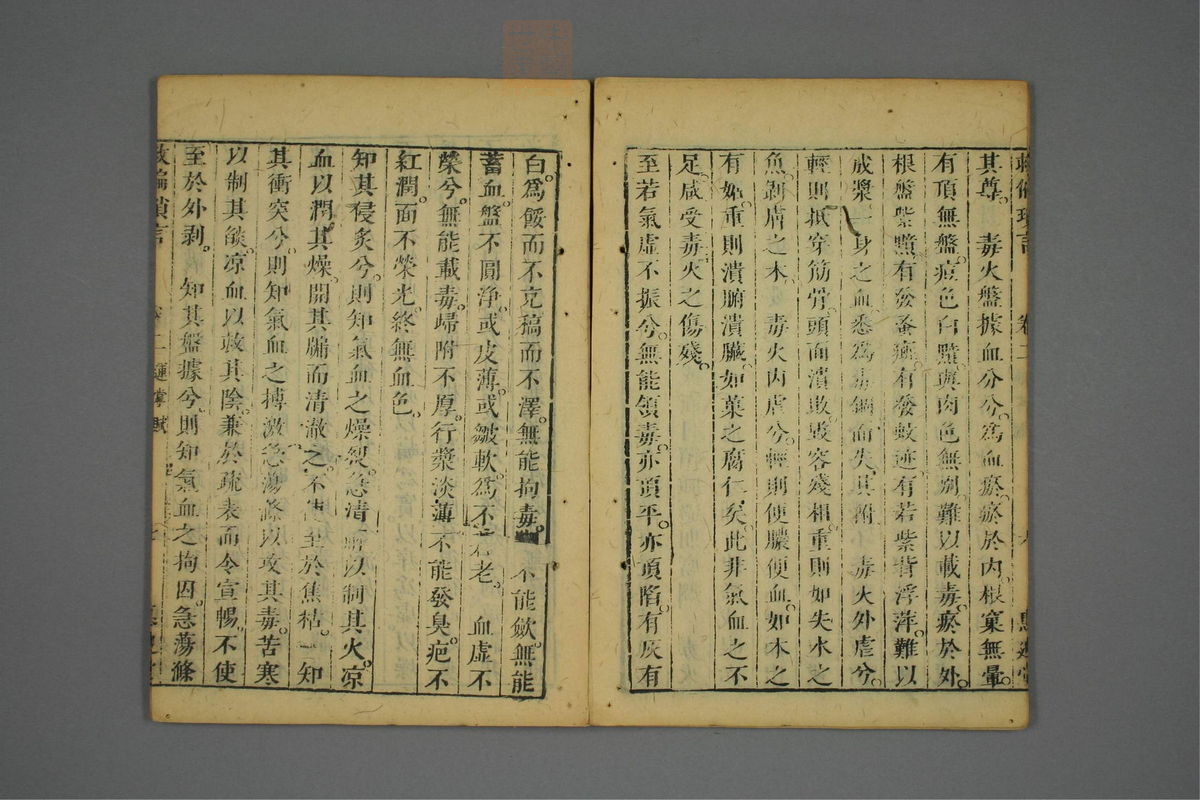 其尊。毒火盤據血分兮。爲血瘀。瘀於內。根窠無暈。
有頂無盤。痘色白黯。與肉色無別。難以載毒。瘀於外。
根盤紫黯。有發蚤斑。有發蚊迹。有若紫背浮萍。難以
成漿。一身之血。悉爲毒錮而失其附。毒火外虐兮。
輕則抵穿筋骨。頭面潰敗。毀容殘相。重則如失水之
魚。剝膚之木。毒火內虐兮。輕則便膿便血。如木之
有蛀。重則潰腑潰臟。如菓之腐仁矣。此非氣血之不
足。咸受毒火之傷殘。
至若氣虛不振兮。無能領毒。亦頂平。亦頂陷。有灰有
白。爲餒而不克稿而不澤。無能拘毒。不能歛。無能
蓄血。盤不圓淨。或皮薄。或皺軟。爲不老。血虛不
榮兮。無能載毒。歸附不厚。行漿淡薄 不能發臭。疤不
紅潤。面不榮光。終無血色。
知其侵炙兮。則知氣血之燥裂。急清 以制其火。凉
血以潤其燥。開其牖而清澈之。不使至於焦枯。知
其衝突兮。則知氣血之搏激。急蕩滌以攻其毒。苦寒
以制其燄。凉血以救其陰。兼於疏表而令宣暢。不使
至於外剥。知其盤據兮。則知氣血之拘因。急蕩滌
卷二 運掌賦